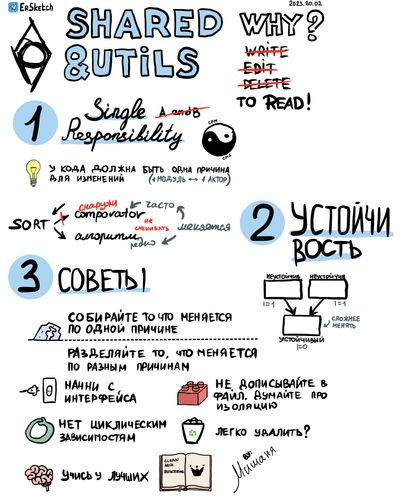 EnSketch
2023.20.02
SHARED
&UTILS
WHY?
WRITE
EDIT
DELETE
TO READ!
1
Single A and B
Responsibility
У КОДА ДОЛЖНА БЫТЬ ОДНА ПРИЧИНА
ДЛЯ ИЗМЕНЕНИЙ (1 МОДУЛЬ ↔ 1 АКТОР)
SORT
снаружи
comporator
часто
не
смешивать
меняется
алгоритм
редко
2 УСТОЙЧИ
ВОСТЬ
НЕУСТОЙЧИВ НЕУСТОЙЧИВ
I=1 I=1
СЛОЖНЕЕ
МЕНЯТЬ
УСТОЙЧИВЫЙ
I=0
3 СОВЕТЫ
СОБИРАЙТЕ ТО ЧТО МЕНЯЕТСЯ
ПО ОДНОЙ ПРИЧИНЕ
РАЗДЕЛЯЙТЕ ТО, ЧТО МЕНЯЕТСЯ
ПО РАЗНЫМ ПРИЧИНАМ
НАЧНИ С
ИНТЕРФЕЙСА
НЕ ДОПИСЫВАЙТЕ В
ФАЙЛ. ДУМАЙТЕ ПРО
ИЗОЛЯЦИЮ
НЕТ ЦИКЛИЧЕСКИМ
ЗАВИСИМОСТЯМ
ЛЕГКО УДАЛИТЬ?
УЧИСЬ У ЛУЧШИХ
BY:
Мишаня